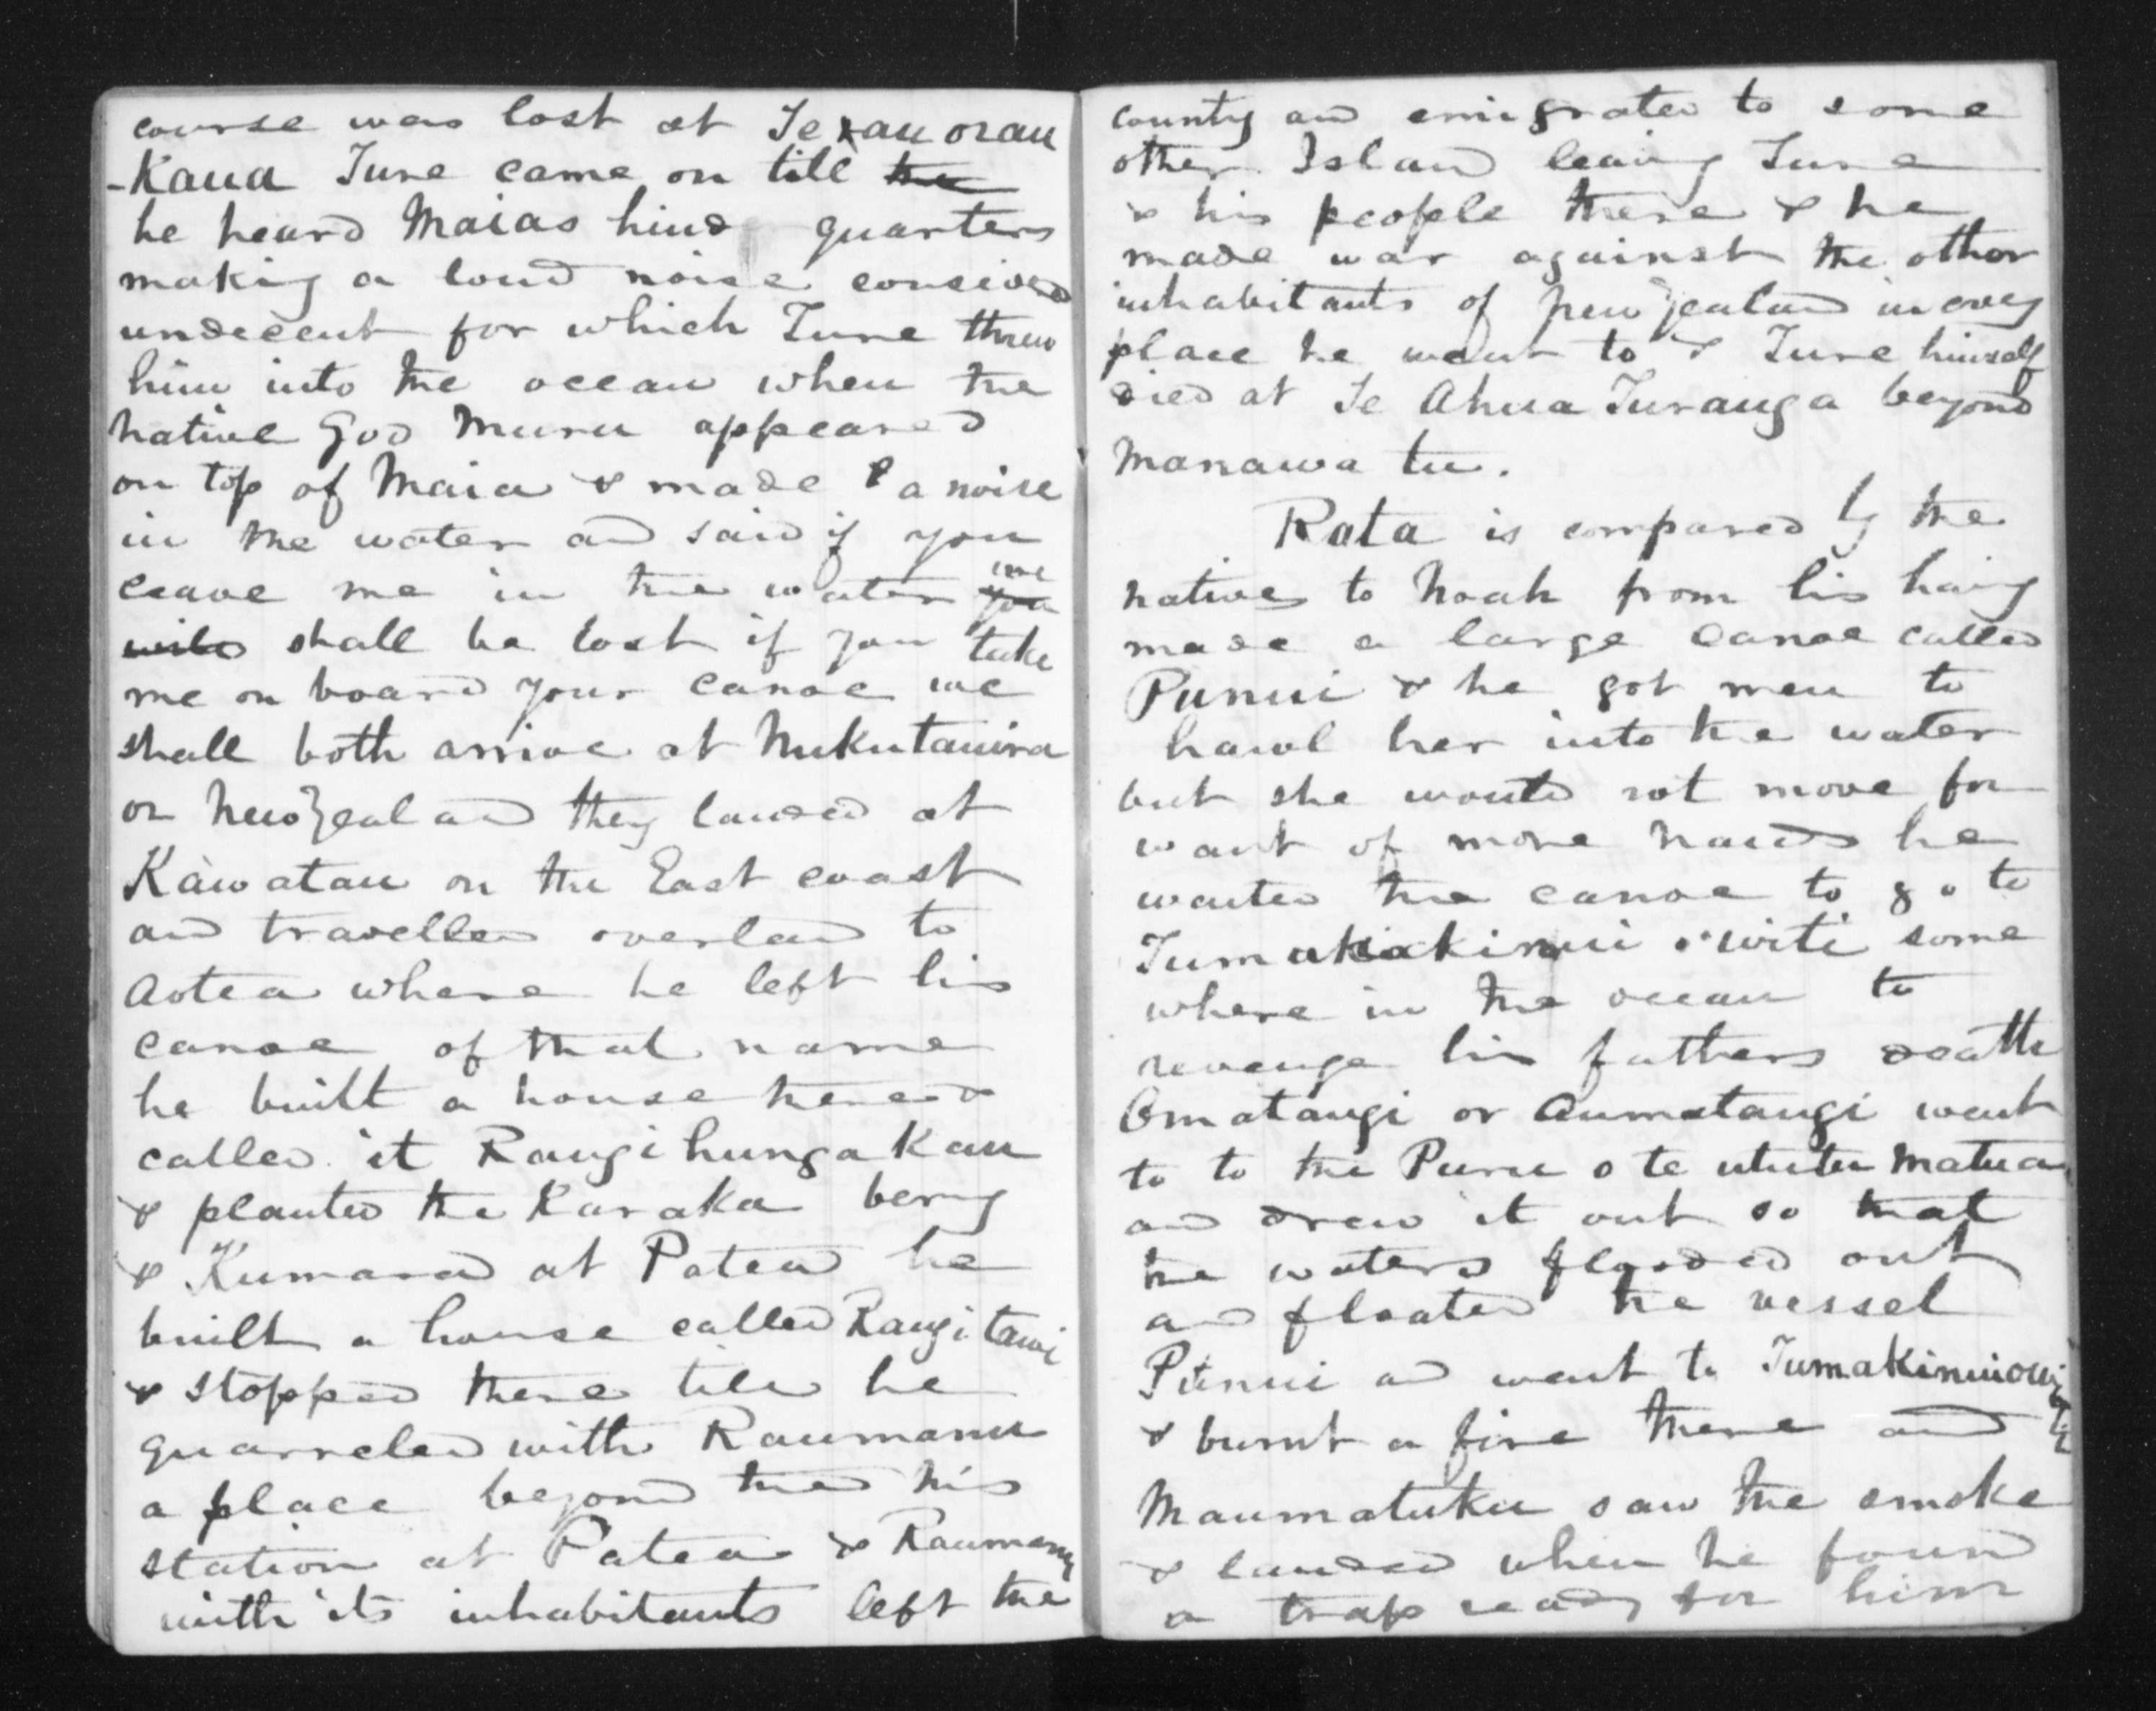 course was lost at Te rau orau
-Kaua Ture came on till the
he heard Maias hind quarters
making a loud noise consived
undecent for which Ture threw
him into the ocean when the
native God Muru appeared
on top of Maia & made a noise
in the water and said if you
leave me in the water you we
will shall be lost if you take
me on board your canoe we
shall both arrive at Nukutawira
or New Zealand they landed at
Kawatau on the East coast
and travelled overland to
Aotea where he left his
canoe of that name
he built a house there &
called it Rangihungakau
& planted the Karaka berry
& Kumara at Patea he
built a house called Rangitawi
& stopped there till he
quarreled with Raumanu
a place beyond the his
station at Patea & Raumanu
with its inhabitants left the
county and emigrated to some
other Island leaving Ture
& his people there & he
made war against the other
inhabitants of New Zealand in every
place he went to & Ture himself
died at Te Ahua Turanga beyond
Manawa tu.
Rata is compared by the
natives to Noah from his having
made a large Canoe called
Punui & he got men to
hawl her into the water
but she would not move for
want of more hands he
wanted the canoe to go to
witi some
where in the ocean to
revenge his fathers death
Omatangi or Aumatangi went
to to the Puru o te ututu Matua
and drew it out so that
the waters flooded out
and floated the vessel
Punui and went to Tumakinuiowiti
& burnt a fire there and
Maumatuku saw the smoke
& landed when he found
a trap ready for him